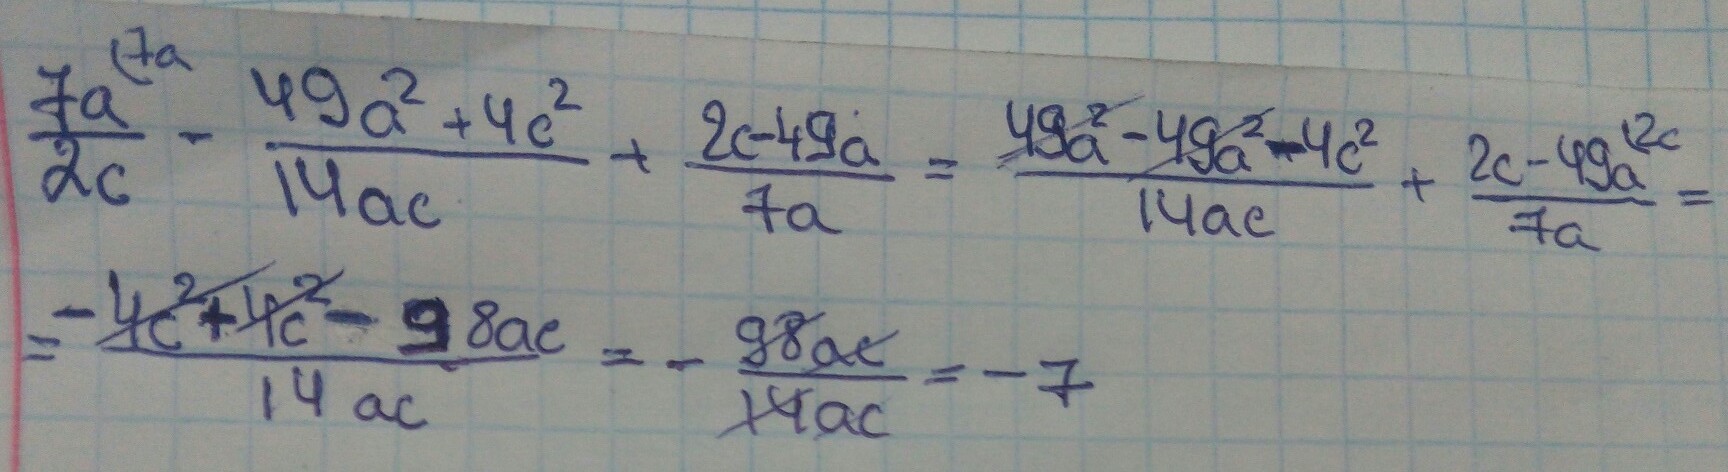 7a⁽⁷ᵃ/2c - (49a² + 4c²)/14ac + (2c - 49a)/7a = (49a² - 49a² - 4c²)/14ac + (2c - 49a⁽²ᶜ)/7a =
= (-4c² + 4c² - 98ac)/14ac = - 98ac/14ac = -7